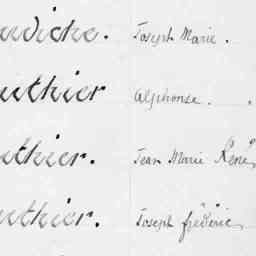 udiche. Joseph Marie.
uthier Alphonse.
uthier. Jean Marie René
uthier. Joseph frédéric